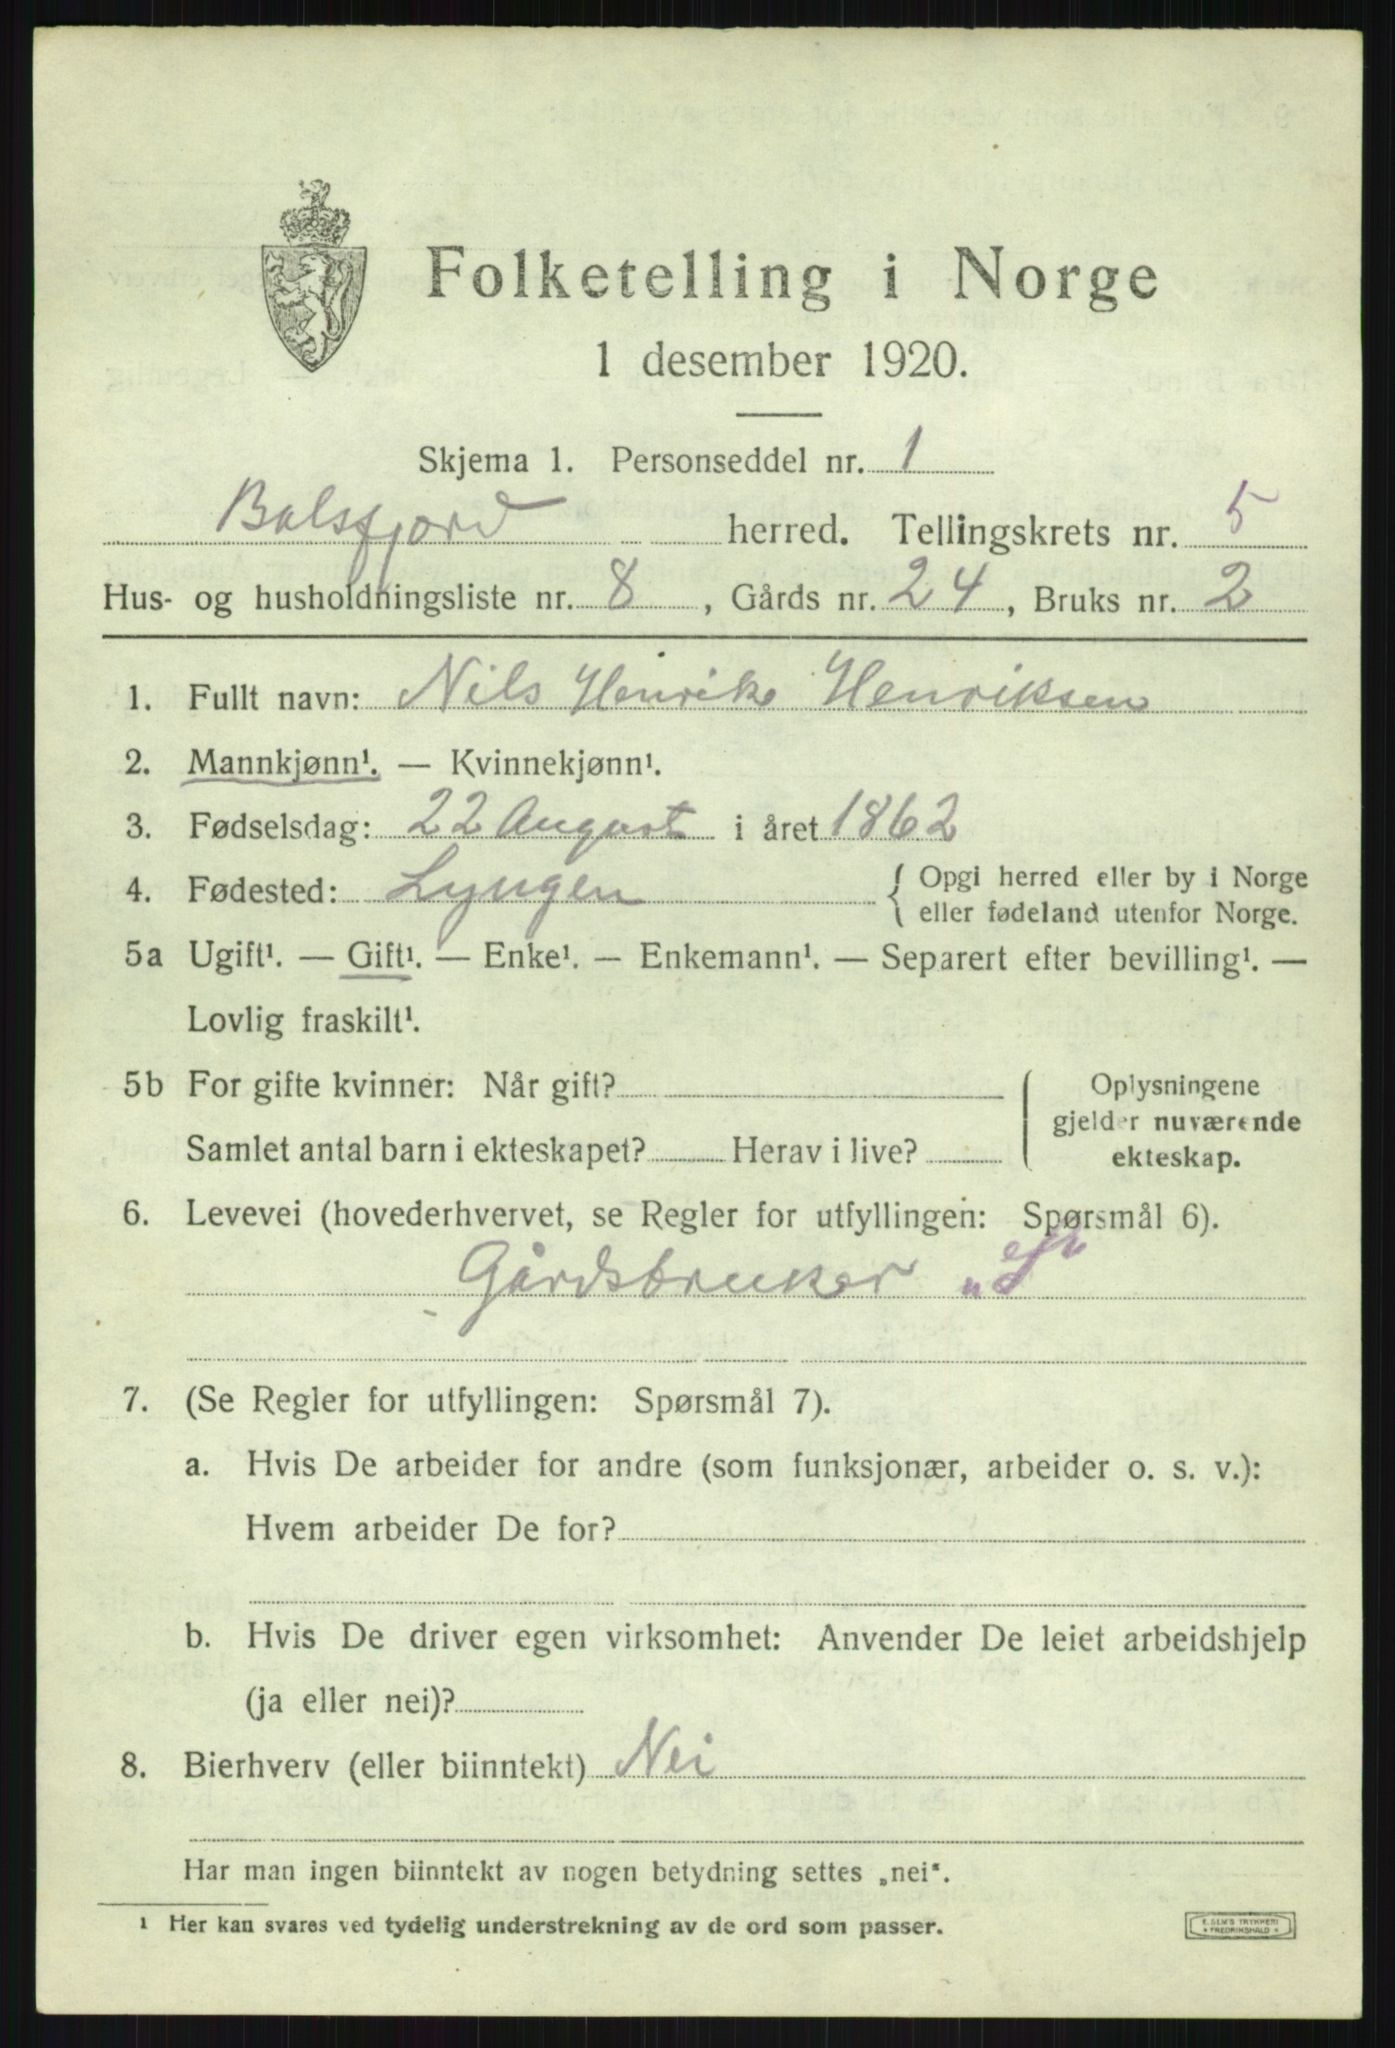 Folketelling i Norge
1 desember 1920.
Skjema 1. Personseddel nr. 1
Balsfjord herred. Tellingskrets nr. 5
Hus- og husholdningsliste nr. 8, Gårds nr. 24, Bruks nr. 2
1. Fullt navn: Nils Henrik Henriksen
2. Mannkjønn¹. — Kvinnekjønn¹.
3. Fødselsdag: 22 August i året 1862
4. Fødested: Lyngen { Opgi herred eller by i Norge
eller fødeland utenfor Norge.
5a Ugift¹. — Gift¹. — Enke¹. — Enkemann¹. — Separert efter bevilling¹. —
Lovlig fraskilt¹.
5b For gifte kvinner: Når gift?
Samlet antal barn i ekteskapet? Herav i live?
Oplysningene
gjelder nuværende
ekteskap.
6. Levevei (hovederhvervet, se Regler for utfyllingen: Spørsmål 6).
Gårdsbruker
7. (Se Regler for utfyllingen: Spørsmål 7).
a. Hvis De arbeider for andre (som funksjonær, arbeider o. s. v.):
Hvem arbeider De for?
b. Hvis De driver egen virksomhet: Anvender De leiet arbeidshjelp
(ja eller nei)?
8. Bierhverv (eller biinntekt) Nei
Har man ingen biinntekt av nogen betydning settes „nei“.
¹ Her kan svares ved tydelig understrekning av de ord som passer.
E. SEM'S TRYKKERI
* FREDRIKSHALD *